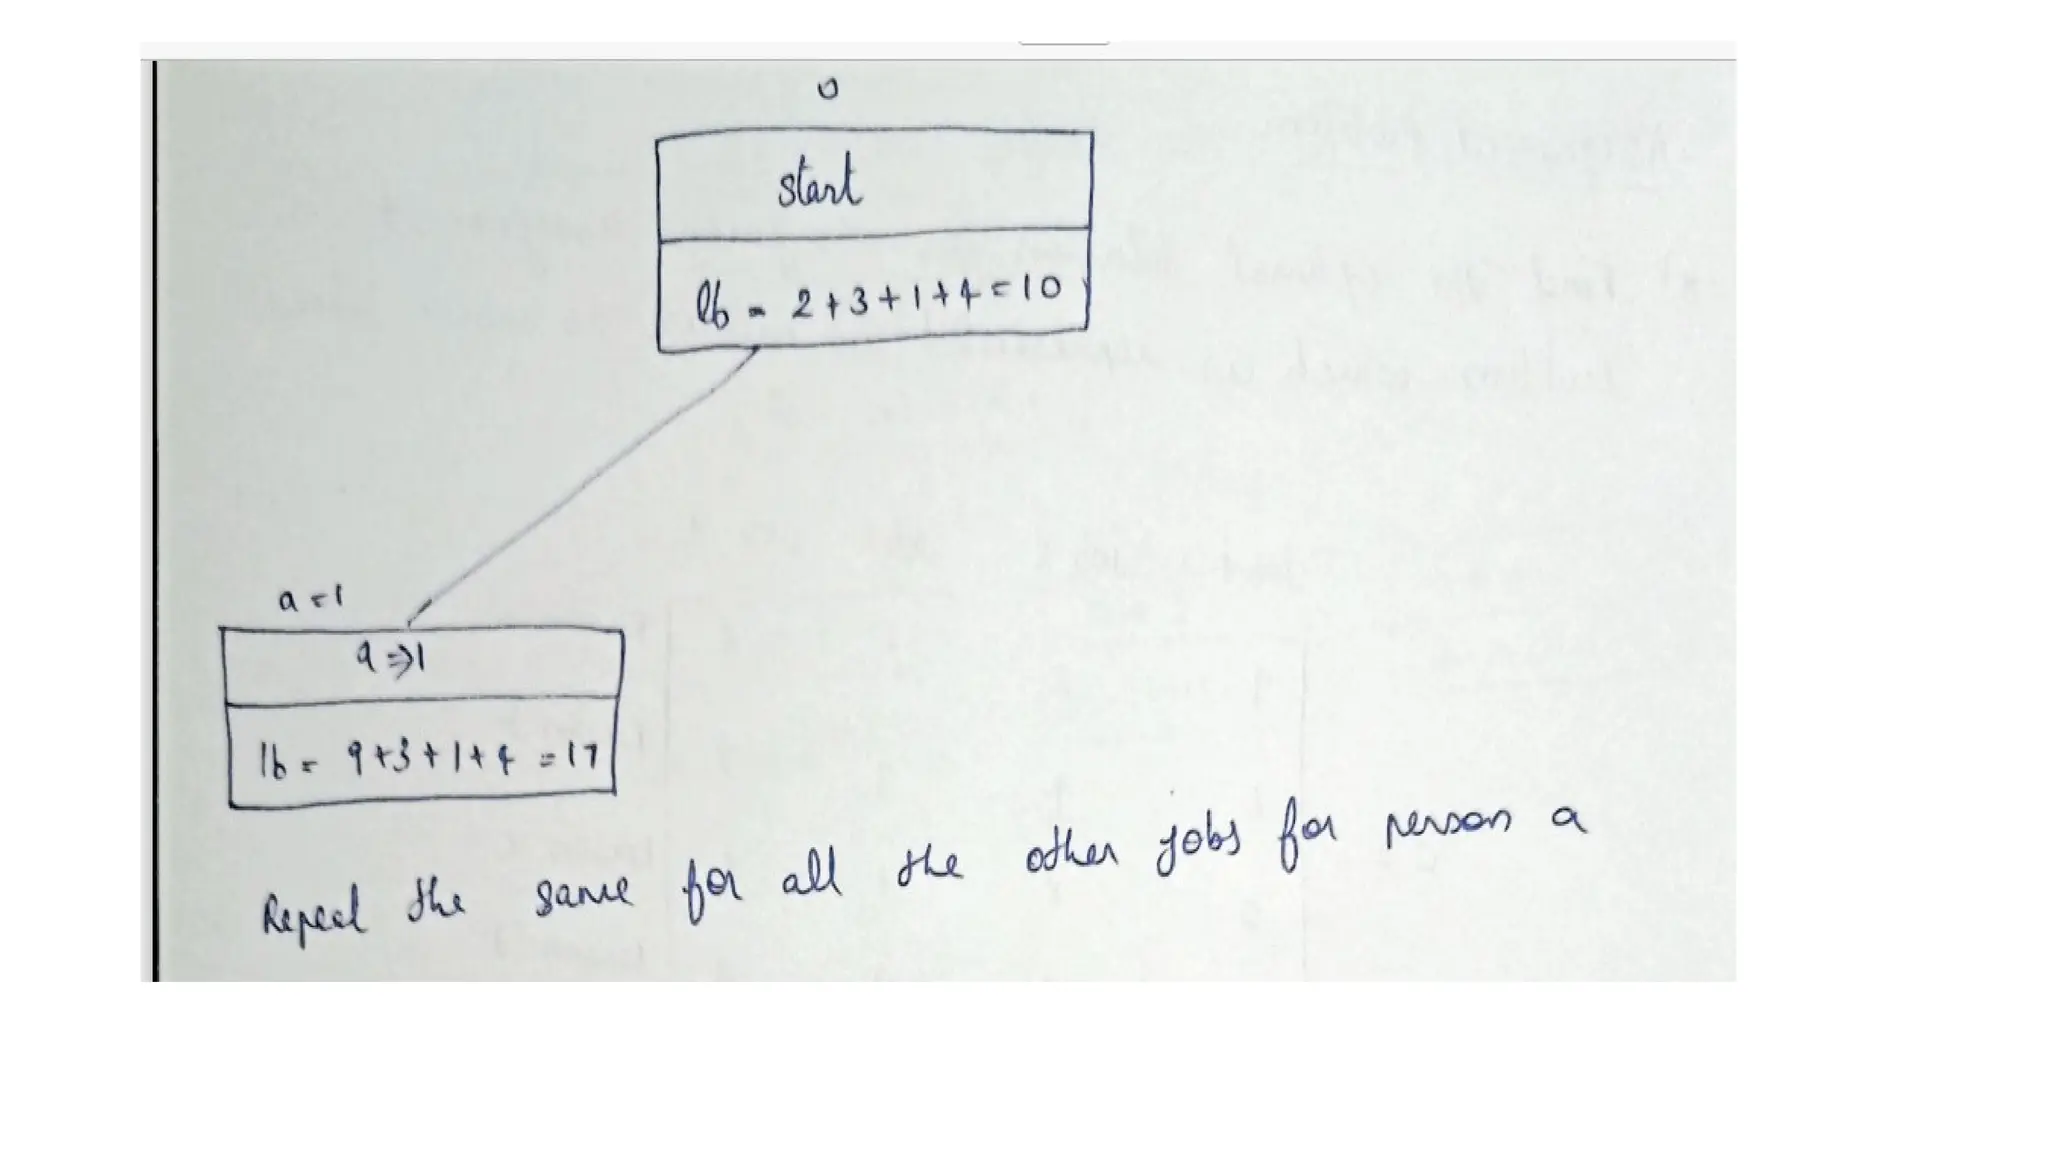 0
start
lb = 2+3+1+4=10
a=1
a⇒1
lb = 9+3+1+4 = 17
Repeat the same for all the other jobs for person a